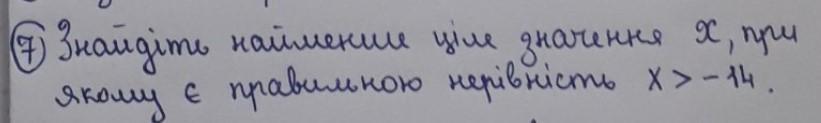 7 Знайдіть найменше ціле значення x, при
якому є правильною нерівність x > -14.